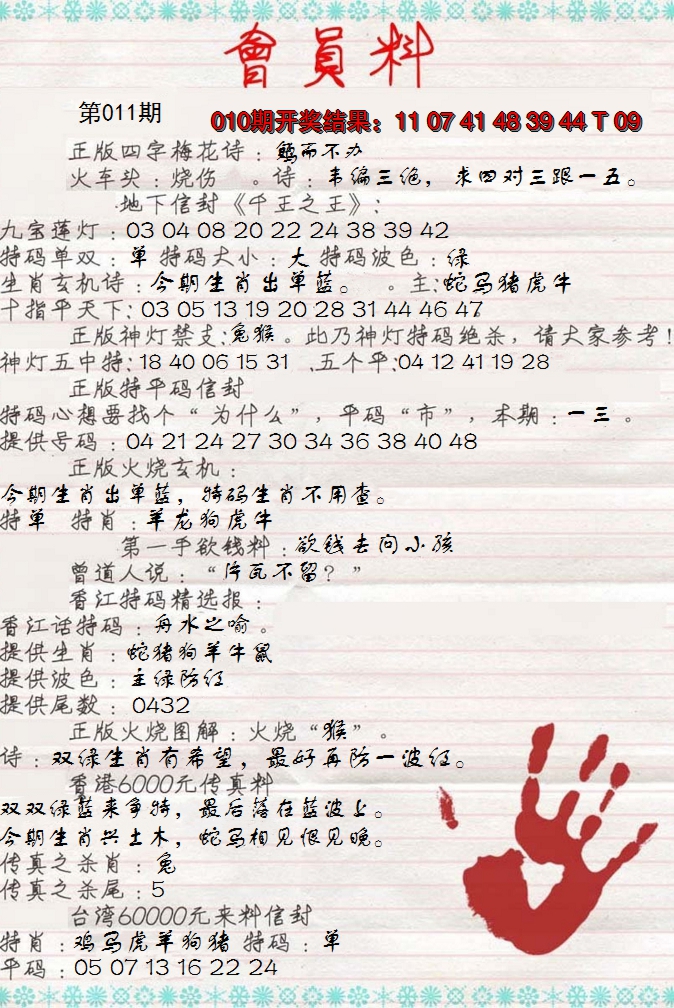 會員料
第011期
010期开奖结果：11 07 41 48 39 44 T 09
正版四字梅花诗：鹅而不办
火车头：烧伤 。诗：韦编三绝，求四对三跟一五。
地下信封《千王之王》:
九宝莲灯：03 04 08 20 22 24 38 39 42
特码单双：单 特码大小：大 特码波色：绿
生肖玄机诗：今期生肖出单蓝。 。主:蛇马猪虎牛
十指平天下: 03 05 13 19 20 28 31 44 46 47
正版神灯禁支:兔猴。此乃神灯特码绝杀，请大家参考!
神灯五中特:18 40 06 15 31 .五个平:04 12 41 19 28
正版特平码信封
特码心想要找个“为什么”，平码“市”，本期：一三 。
提供号码：04 21 24 27 30 34 36 38 40 48
正版火烧玄机：
今期生肖出单蓝，特码生肖不用查。
特单 特肖：羊龙狗虎牛
第一手欲钱料：欲钱去问小孩
曾道人说：“片瓦不留？”
香江特码精选报：
香江话特码：舟水之喻。
提供生肖：蛇猪狗羊牛鼠
提供波色：主绿防红
提供尾数：0432
正版火烧图解：火烧“猴”。
诗：双绿生肖有希望，最好再防一波红。
香港6000元传真料
双双绿蓝来争特，最后落在蓝波上。
今期生肖兴土木，蛇马相见恨见晚。
传真之杀肖：兔
传真之杀尾：5
台湾60000元来料信封
特肖：鸡马虎羊狗猪 特码：单
平码：05 07 13 16 22 24